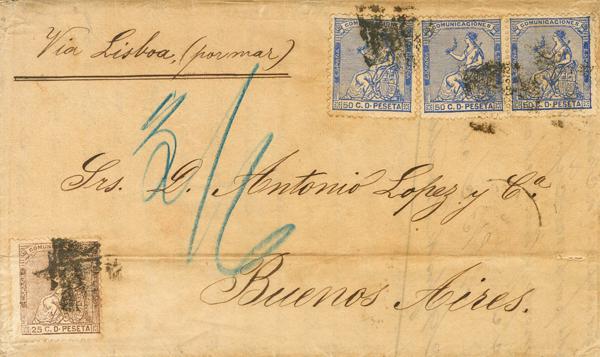 Via Lisboa, (por mar)
COMUNICACIONES COMUNICACIONES COMUNICACIONES
ESPAÑA
50 C. D. PESETA 50 C. D. PESETA 50 C. D. PESETA
3/6
Srs. D. Antonio Lopez y Cª.
Buenos Aires.
COMUNICACIONES
25 C. D. PESETA